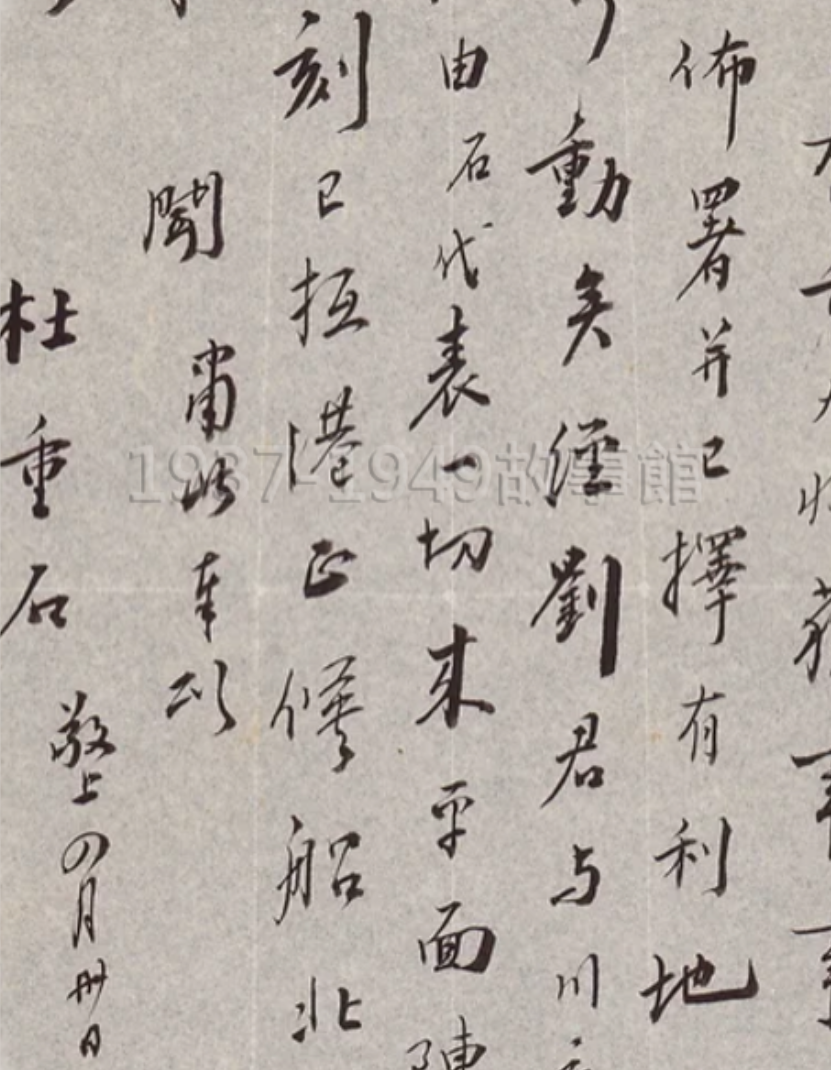 佈署并已擇有利地
動矣經劉君与川
由石代表一切來平面陳
刻已抵港正候船北
聞肅此奉以
杜重石敬上四月卅日
1937-1949故事館